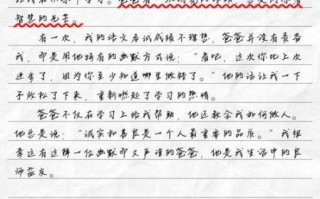 智慧的光芒。
有一次，我的语文考试成绩不理想，爸爸并没有责备
我，而是用他特有的幽默方式说："看吧，这次你比上次
进步了，因为你至少知道哪里做错了。"他的话让我一下
子放松了下来，重新燃起了学习的热情。
爸爸不仅在学习上给我帮助，他还教会我如何做人。
他总是说："诚实和善良是一个人最重要的品质。"我很
幸运有这样一位幽默而又严谨的爸爸，他是我生活中的良
师益友。